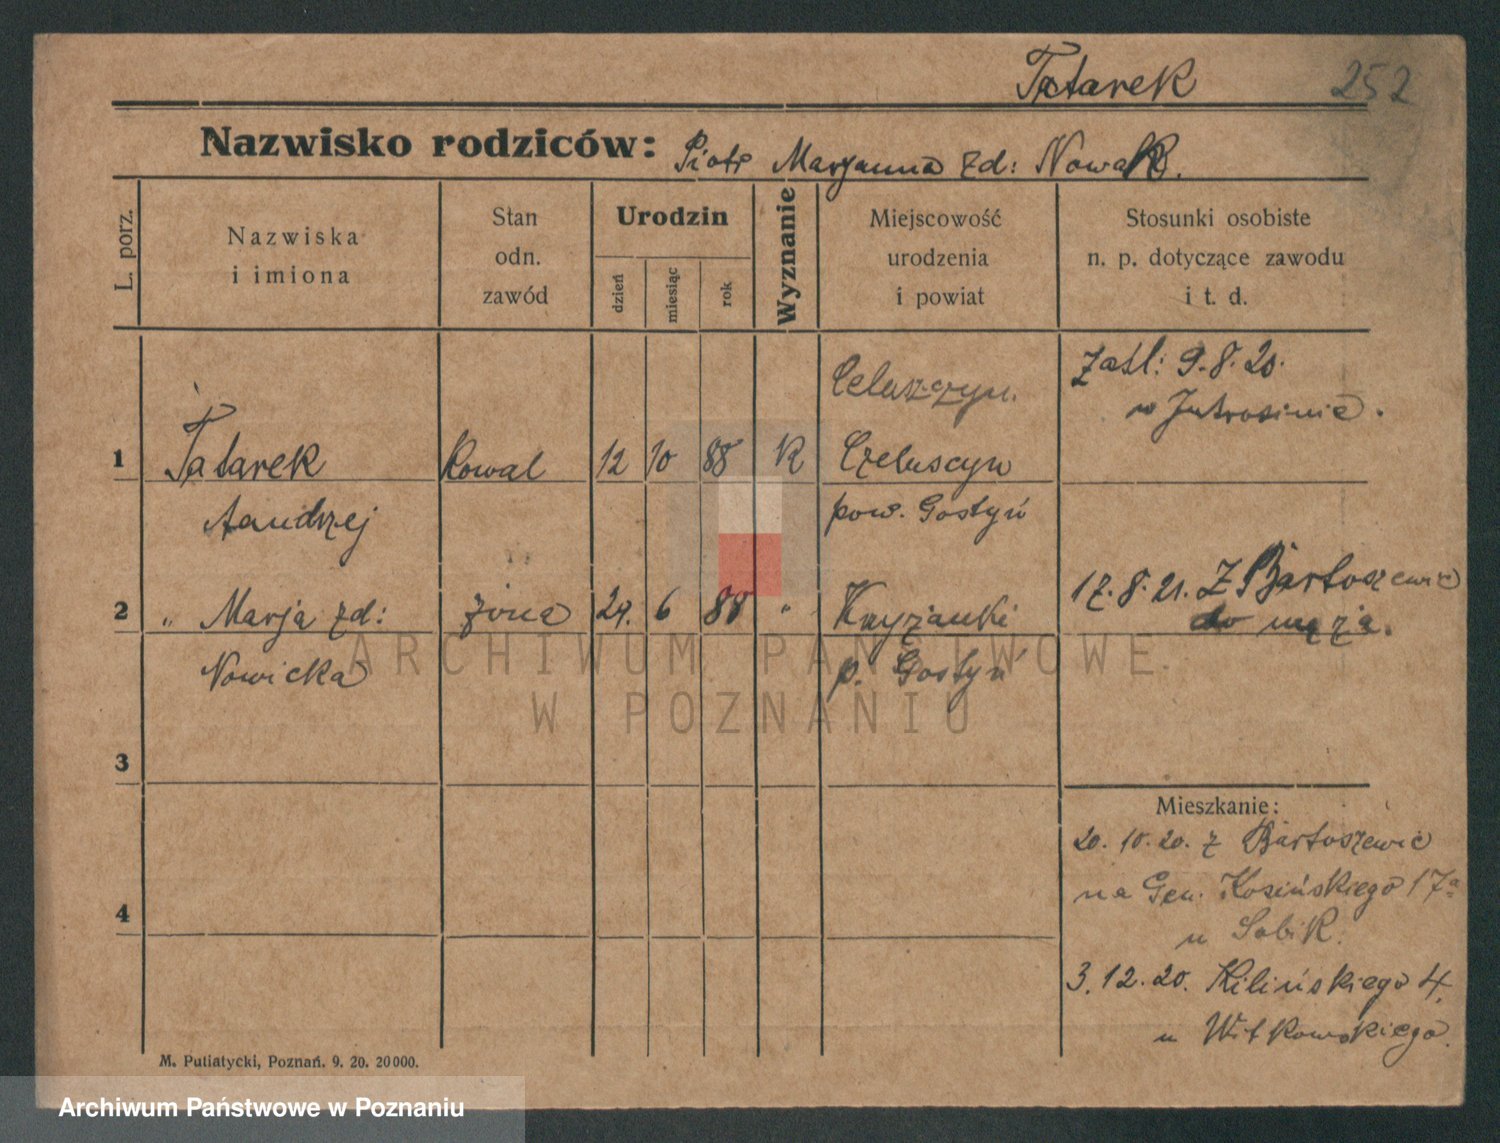 Tatarek 252
Nazwisko rodziców: Piotr Maryanna zd: Nowak.
L. porz.
Nazwiska
i imiona
Stan
odn.
zawód
Urodzin
dzień
miesiąc
rok
Wyznanie
Miejscowość
urodzenia
i powiat
Stosunki osobiste
n. p. dotyczące zawodu
i t. d.
Celuszczyn.
zaśl: 9.8.20.
w Jutrosinie.
1 Tatarek Kowal 12 10 88 K Czeluscyn
Aandrzej pow. Gostyń
17.8.21. Z Bartoszewic
do męża.
2 " Marja zd: żona 27. 6 88 "
Nowicka p. Gostyń
3
Mieszkanie:
20.10.20. z Bartoszewic
na Gen. Kosińskiego 17a
u Sobik.
4
3.12.20. Kilińskiego 4.
u Witkowskiego.
M. Putiatycki, Poznań. 9. 20. 20000.
ARCHIWUM PAŃSTWOWE
W POZNANIU
Archiwum Państwowe w Poznaniu